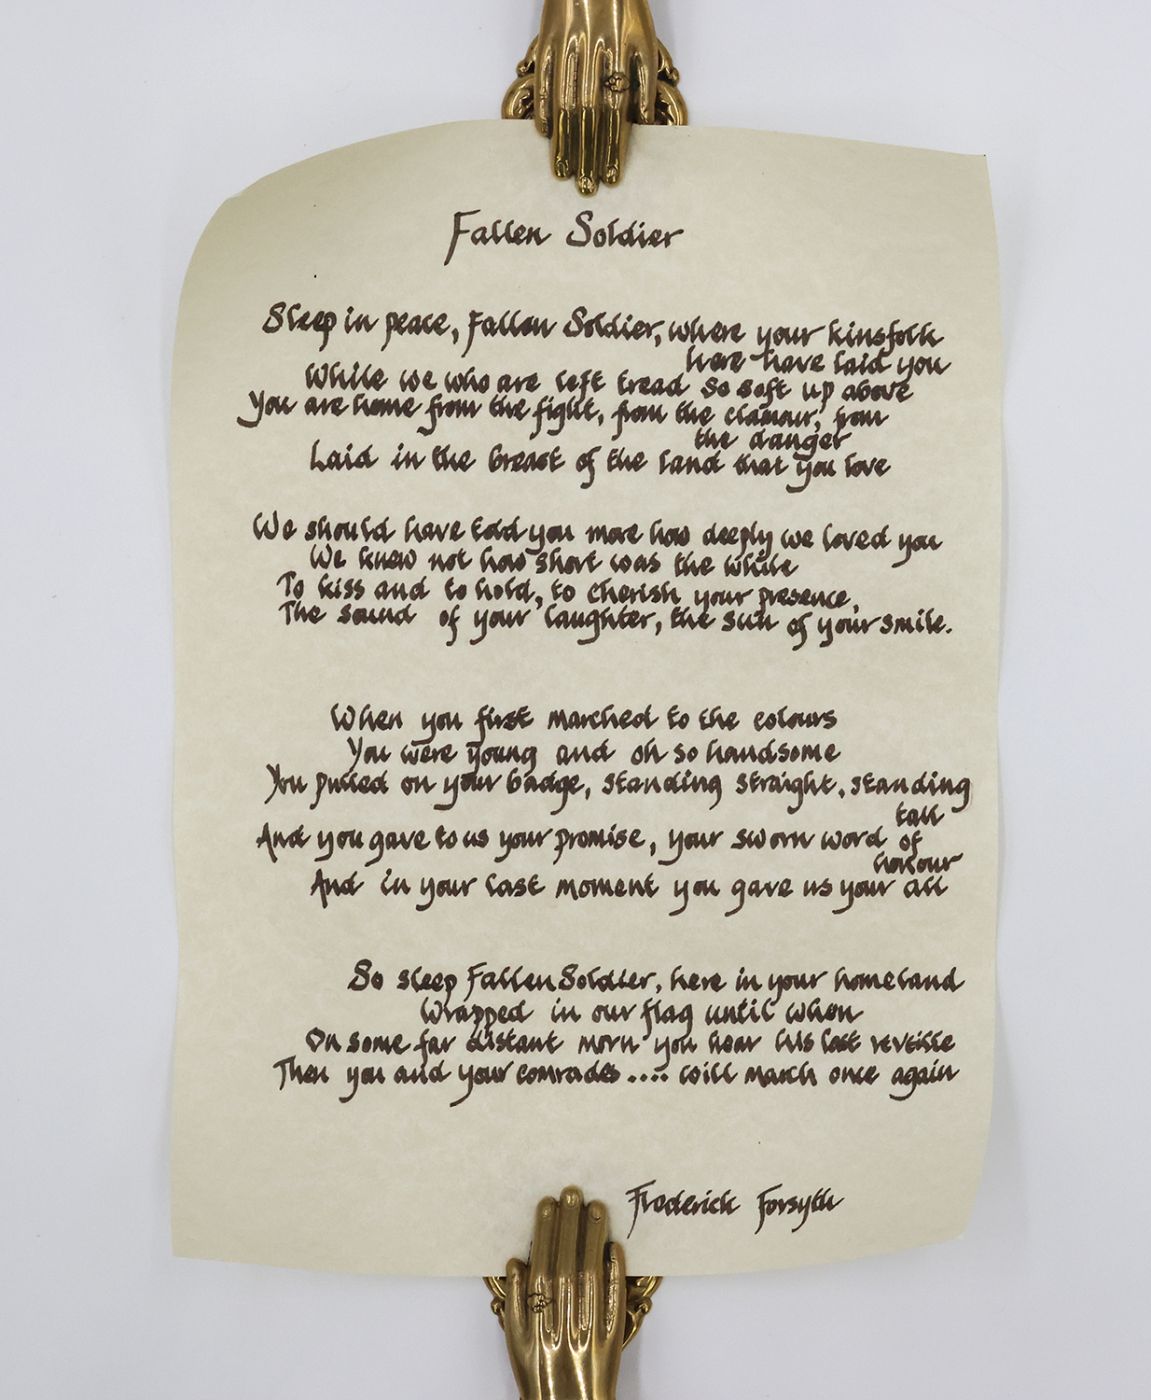 Fallen Soldier
Sleep in peace, Fallen Soldier, where your kinsfolk
here have laid you
While we who are left tread so soft up above
You are home from the fight, from the clamour, from
the danger
Laid in the breast of the land that you love
We should have told you more how deeply we loved you
We knew not how short was the while
To kiss and to hold, to cherish your presence,
The sound of your laughter, the sun of your smile.
When you first marched to the colours
You were young and oh so handsome
You pulled on your badge, standing straight, standing
tall
And you gave to us your promise, your sworn word of
honour
And in your last moment you gave us your all
So sleep Fallen Soldier, here in your homeland
Wrapped in our flag until when
On some far distant morn you hear his last reveille
Then you and your comrades .... will march once again
Frederick Forsyth